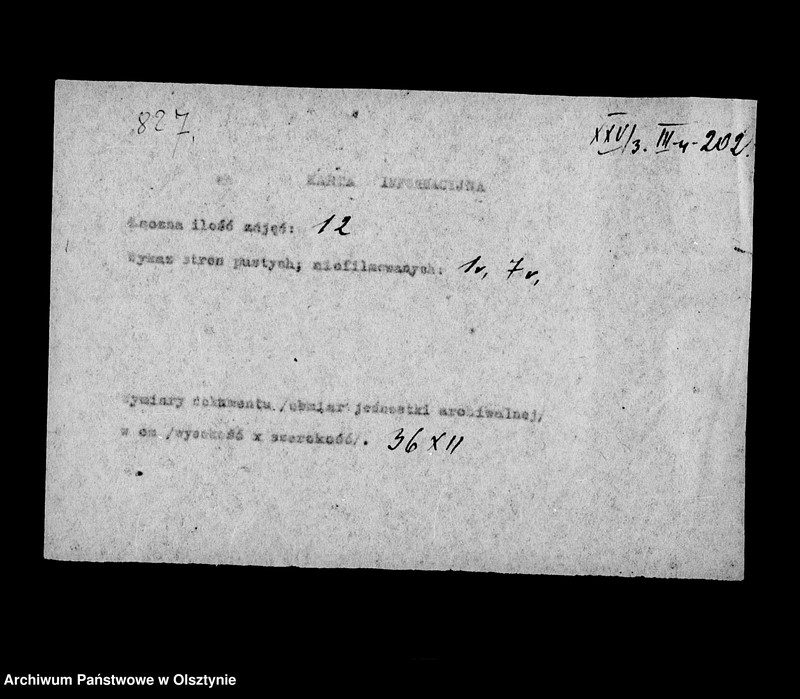 827.
XXV/3. III-4-202.
KARTA INFORMACYJNA
Łączna ilość zdjęć: 12
Wykaz stron pustych; niefilmowanych: 1v, 7v,
Wymiary dokumentu /obmiar jednostki archiwalnej/
w cm /wysokość x szerokość/. 36 x 11
Archiwum Państwowe w Olsztynie